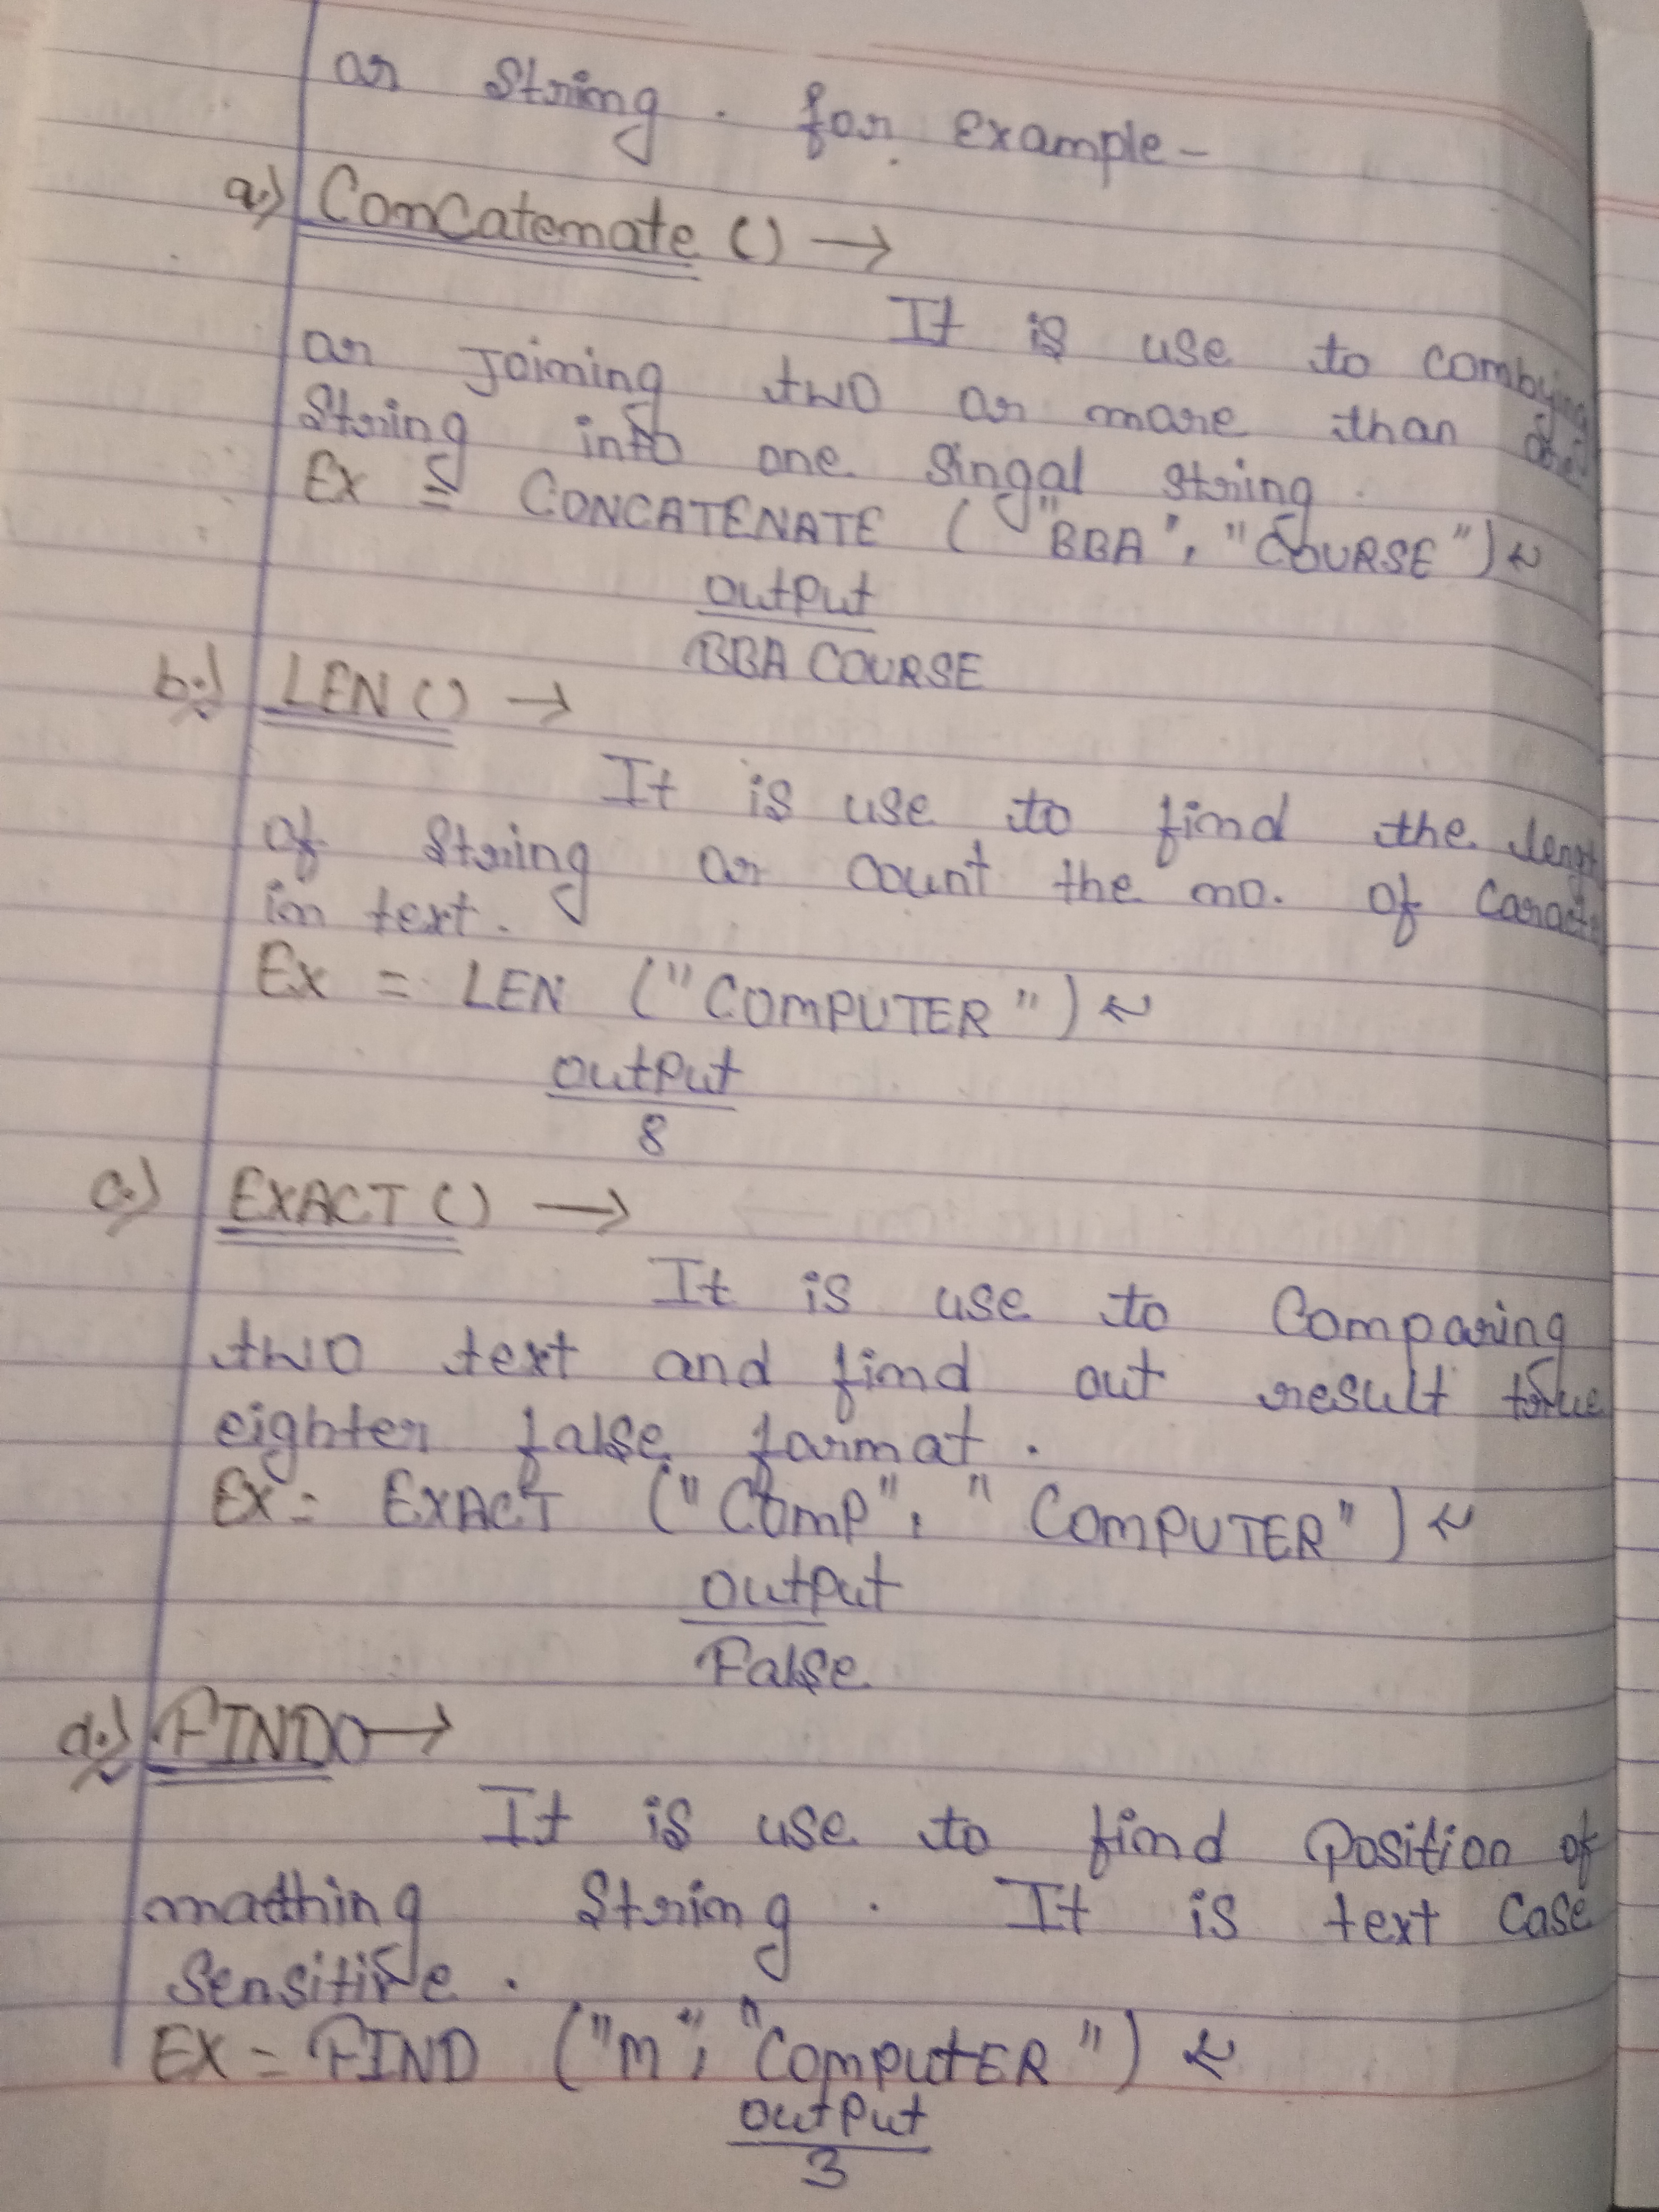 or String . for Example-
a.) Concatenate () →
It is use to combying
or Joining two or more than
String into one Singal string .
Ex = CONCATENATE ("BBA", "COURSE") ↵
output
BBA COURSE
b.) LEN () →
It is use to find the lengt
of String or count the no. of Caract
in text .
Ex = LEN ("COMPUTER") ↵
output
8
c.) EXACT () →
It is use to Comparing
two text and find out result true
eighter false format .
EX = EXACT ("Comp", "COMPUTER") ↵
output
False
d.) FIND() →
It is use to find Position of
mathing String . It is text Case
Sensitive .
EX = FIND ("m", "ComputER") ↵
output
3